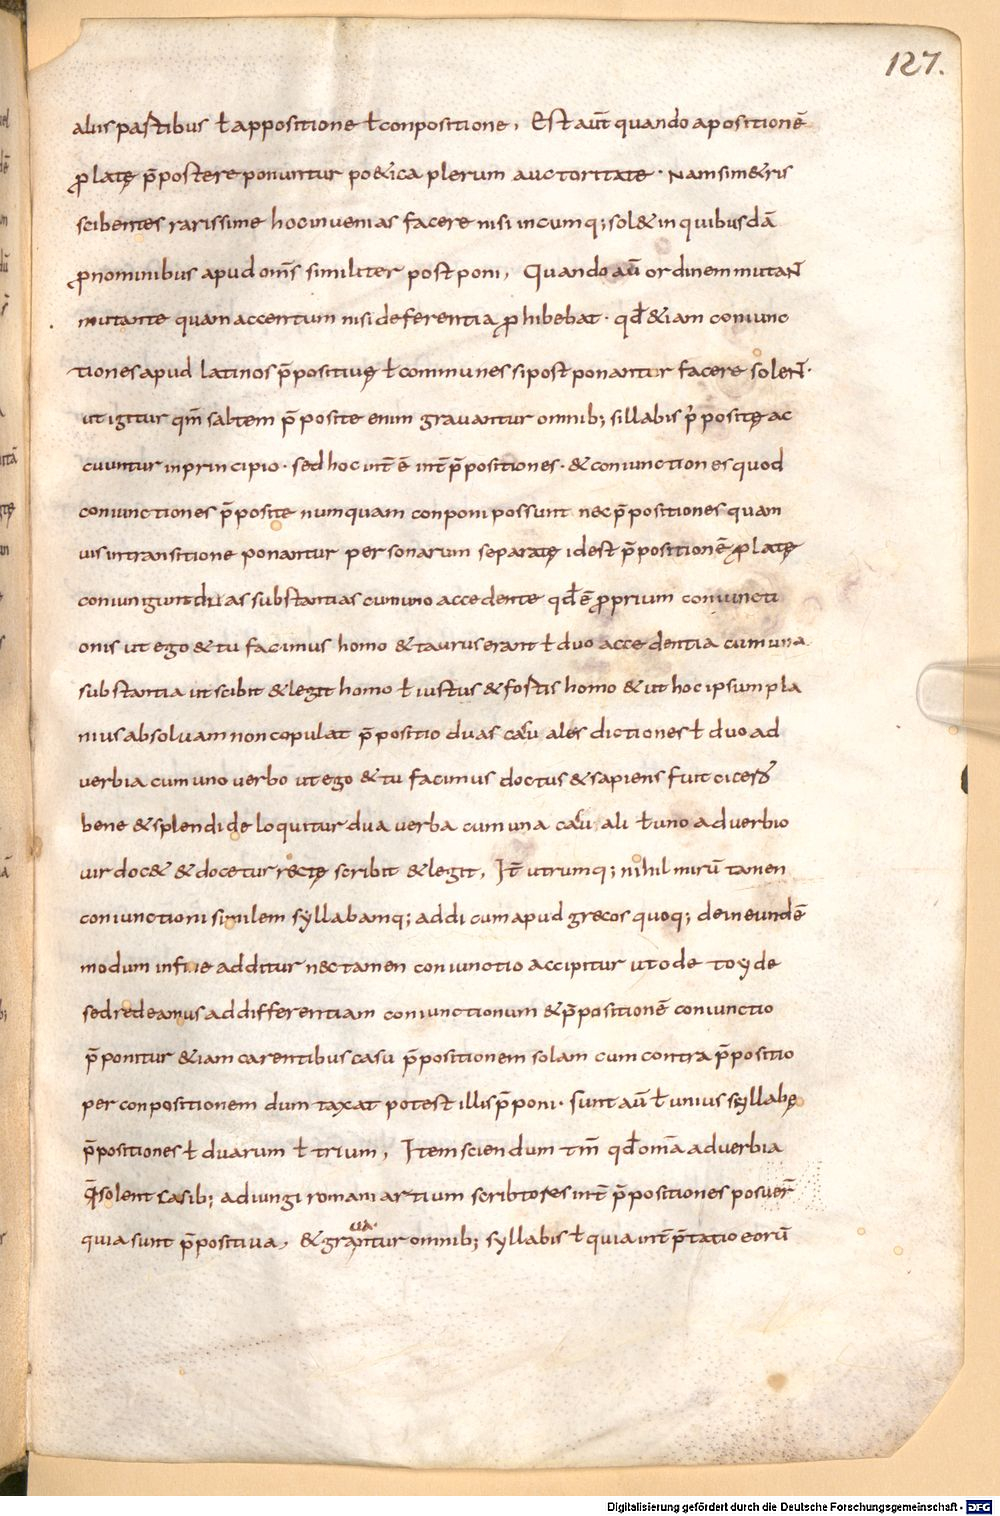 127.
aliis partibus ł appositione ł conpositione, Est aūt quando apositionē
ꝓlatę p̄postere ponuntur po&ica plerum auctoritate · Nam sim&ris
scibentes rarissime hoc inuenias facere nisi in cumq; sol& in quibusdā
ꝓnominibus apud om̄s similiter postponi, Quando aū ordinem mutaN̄
mutante quam accentum nisi deferentia ꝓhibebat · qđ &iam coniunc
tiones apud latinos p̄positiuę ł communes si postponantur facere soleN̄ ·
ut igitur qm̄ saltem p̄posite enim grauantur omnib; sillabis p̄ positę ac
cuuntur in principio · sed hoc int̄ ē int̄ p̄positiones · & coniunctiones quod
coniunctiones p̄posite numquam conponi possunt nec p̄positiones quam
uis in transitione ponantur personarum separatę idest p̄positionē ꝓlatę
coniungunt duas substantias cum uno accedente qđ ē ꝓprium coniuncti
onis ut ego & tu facimus homo & taurus erant ł duo accedentia cum una
substantia ut scibit & legit homo ł iustus & fostis homo & ut hoc ipsum pla
nius absoluam non copulat p̄positio duas casuales dictiones ł duo ad
uerbia cum uno uerbo ut ego & tu facimus doctus & sapiens fuit cicero
bene & splendide loquitur dua uerba cum una casuali ł uno aduerbio
uir doc& & docetur rectę scribit & legit, It̄ utrumq; nihil mirū tamen
coniunctioni similem syllabamq; addi cum apud grecos quoq; de in eundē
modum in fine additur nec tamen coniunctio accipitur ut o de toy de
sed redeamus ad differentiam coniunctionum & p̄positionē coniunctio
p̄ponitur &iam carentibus casu p̄positionem solam cum contra p̄positio
per conpositionem dum taxat potest illis p̄poni · sunt aū ł unius syllabę
p̄positiones ł duarum ł trium, Item sciendum tm̄ qđ om̄a aduerbia
q̄ solent casib; adiungi romani artium scribtores int̄ p̄positiones posuer̄
quia sunt p̄positiua, & grauantur omnib; syllabis ł quia int̄p̄tatio eorū
Digitalisierung gefördert durch die Deutsche Forschungsgemeinschaft - DFG